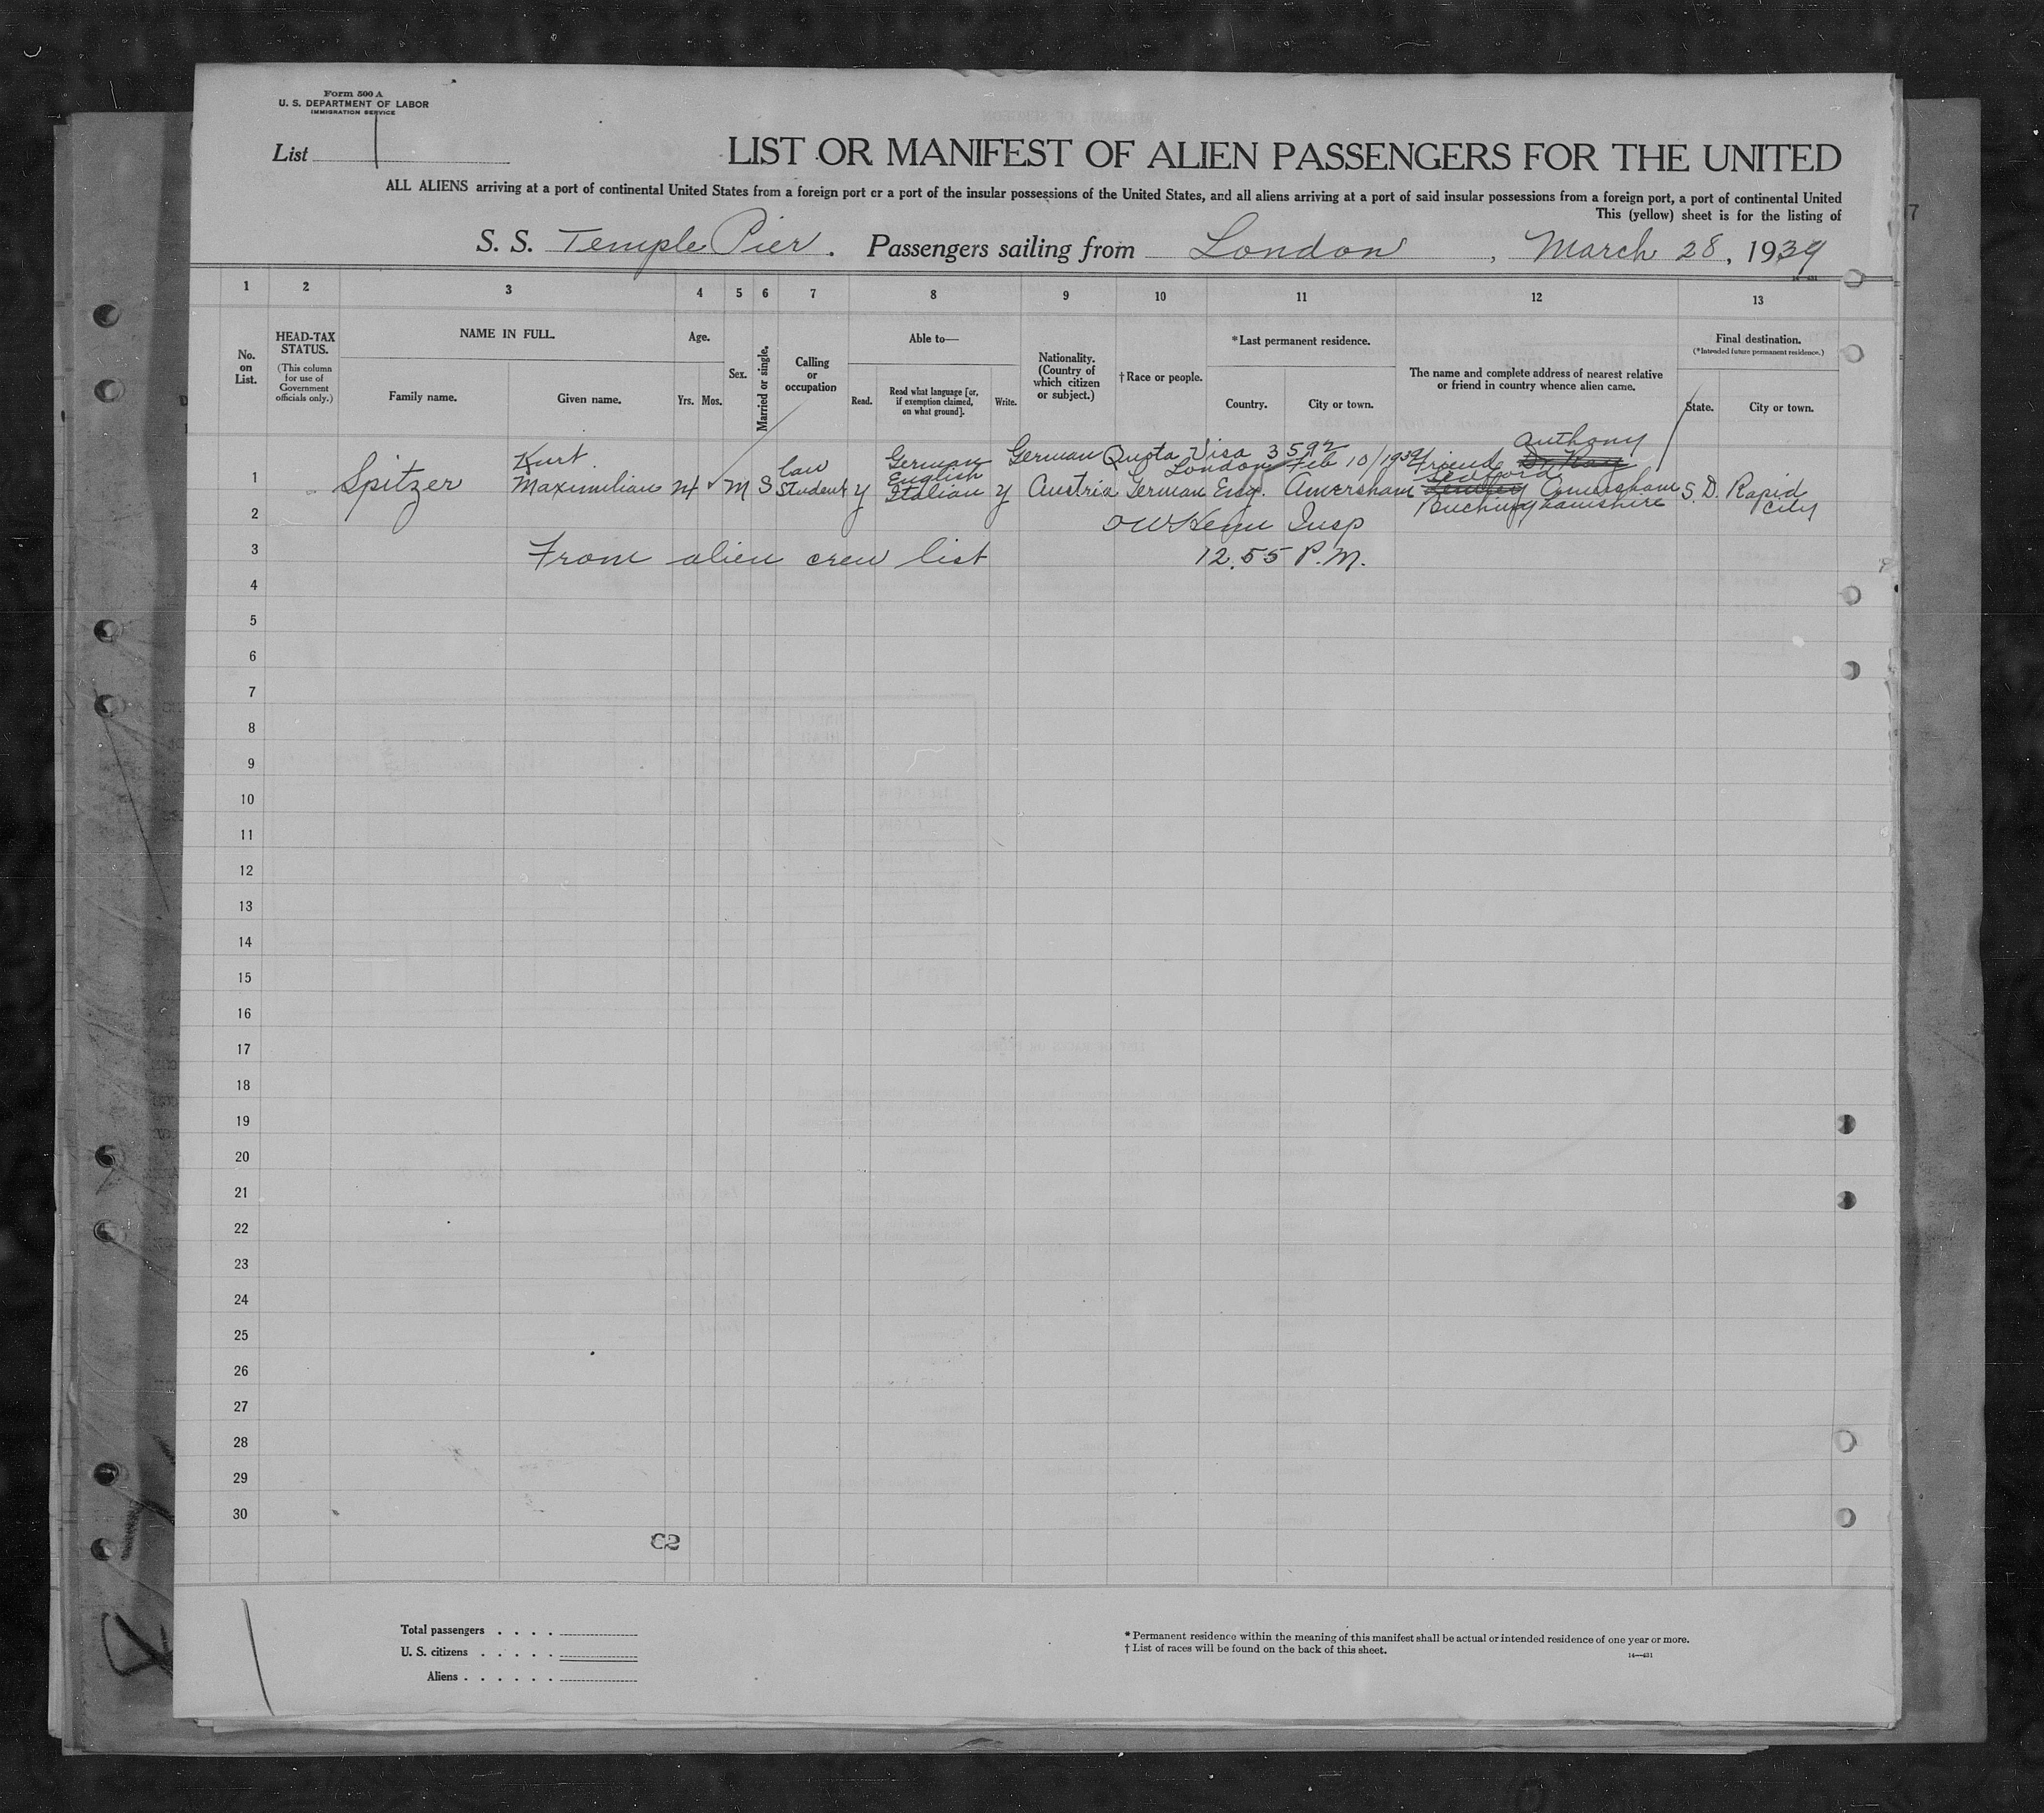 Form 500 A
U. S. DEPARTMENT OF LABOR
IMMIGRATION SERVICE
List 1
LIST OR MANIFEST OF ALIEN PASSENGERS FOR THE UNITED
ALL ALIENS arriving at a port of continental United States from a foreign port or a port of the insular possessions of the United States, and all aliens arriving at a port of said insular possessions from a foreign port, a port of continental United
This (yellow) sheet is for the listing of
S. S. Temple Pier. Passengers sailing from London, March 28, 1939
14—431
1 2 3 4 5 6 7 8 9 10 11 12 13
No. on List.
HEAD-TAX STATUS.
(This column for use of Government officials only.)
NAME IN FULL.
Family name. Given name.
Age.
Yrs. Mos.
Sex.
Married or single.
Calling or occupation
Able to—
Read. Read what language [or, if exemption claimed, on what ground]. Write.
Nationality. (Country of which citizen or subject.)
†Race or people.
*Last permanent residence.
Country. City or town.
The name and complete address of nearest relative or friend in country whence alien came.
Final destination.
(*Intended future permanent residence.)
State. City or town.
German Quota Visa 3592
London Feb 10/1939
1 Spitzer Kurt Maximilian 24 M S Law Student y German English Italian y Austria German Eng. Amersham Friend Anthony Amersham Buckinghamshire S. D. Rapid City
2 Insp
3 From alien crew list 12.55 P.M.
4
5
6
7
8
9
10
11
12
13
14
15
16
17
18
19
20
21
22
23
24
25
26
27
28
29
30
Total passengers . . . .
U. S. citizens . . . . .
Aliens . . . . . .
* Permanent residence within the meaning of this manifest shall be actual or intended residence of one year or more.
† List of races will be found on the back of this sheet.
14—431